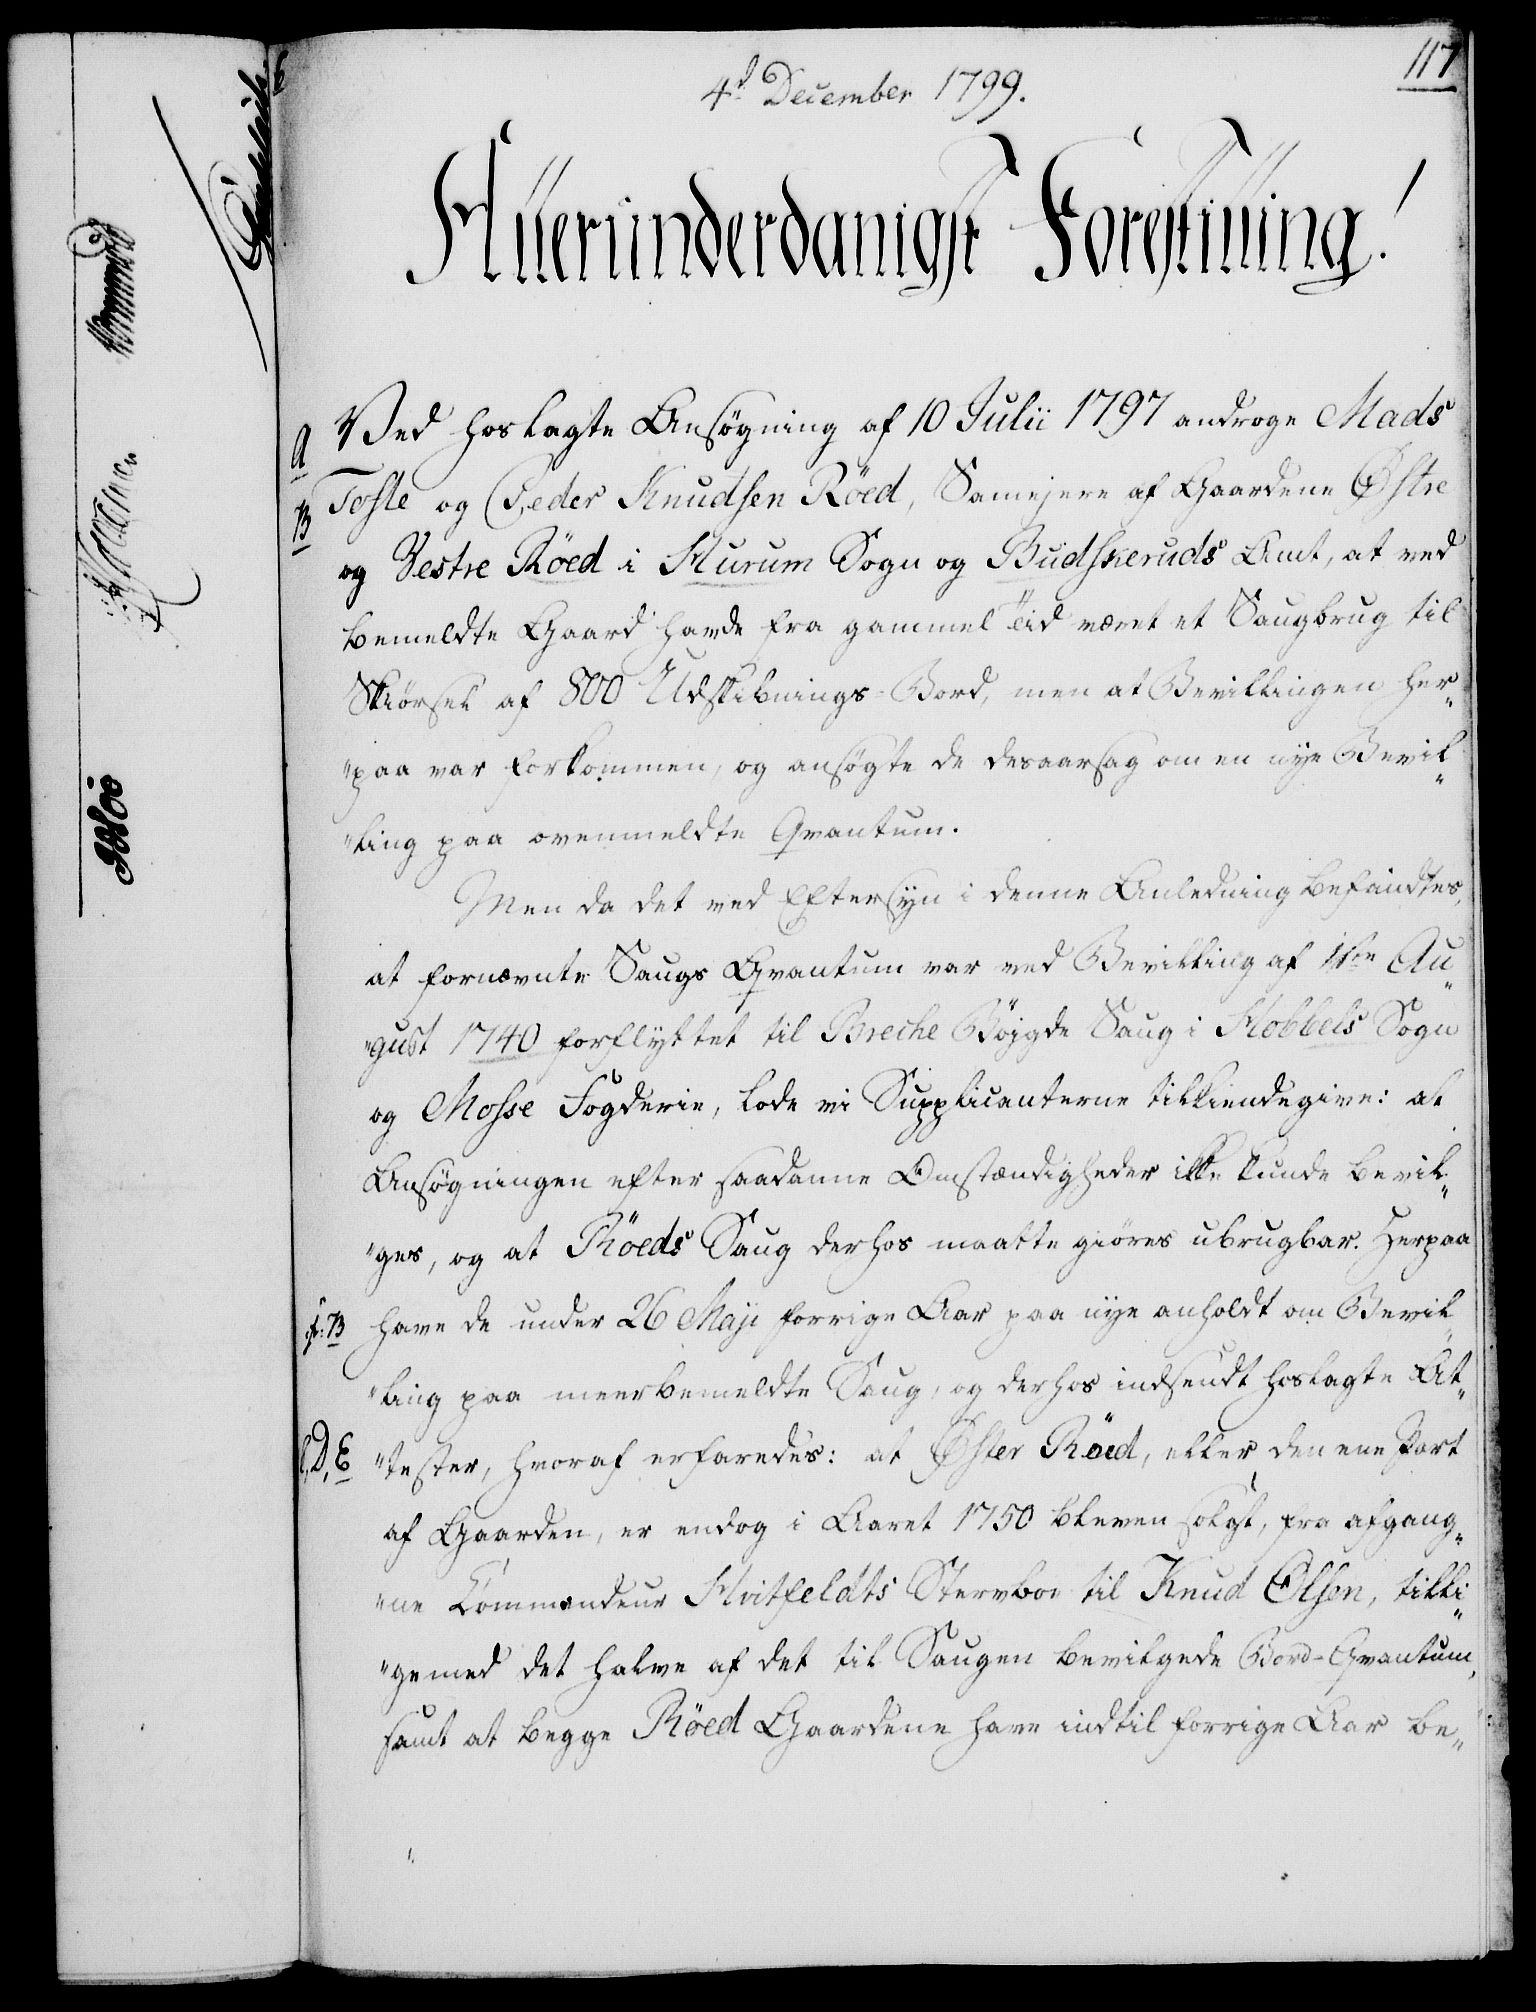 117
4d December 1799.
Allerunderdanigst Forestilling!
A Ved hoslagte Ansøgning af 10 Julii 1797 androge Mads
B Tofte og Peder Knudsen Röed, Samejere af Gaardene Østre
og Vestre Röed i Hurum Sogn og Budskeruds Amt, at ved
bemeldte Gaard havde fra gammel Tiid været et Saugbrug til
Skiørsel af 800 Udskibnings-Bord, men at Bevillingen her„
„paa var forkommen, og ansøgte de desaarsag om en nye Bevil„
„ling paa ovenmeldte Qvantum.
Men da det ved Eftersyn i denne Anledning befandtes,
at fornævnte Saugs Qvantum var ved Bevilling af 1ste Au„
„gust 1740 forflyttet til Breche Böjgde Saug i Hobbels Sogn
og Mosse Fogderie, lode vi Supplicanterne tilkiendegive: at
Ansøgningen efter saadanne Omstændigheder ikke kunde bevil„
„ges, og at Röeds Saug derhos maatte giöres ubrugbar. Herpaa
cf: B have de under 26 Maji forrige Aar paa nye anholdt om Bevil„
„ling paa meerbemeldte Saug, og derhos indsendt hoslagte At„
C, D, E „tester, hvoraf erfaredes: at Øster Röed, eller den ene Part
af Gaarden, er endog i Aaret 1750 bleven solgt, fra afgang„
„ne Commandeur Hvitfeldts Stervboe til Knud Olsen, tilli„
„gemed det halve af det til Saugen bevilgede Bord-Qvantum,
samt at begge Röed Gaardene have indtil forrige Aar be„